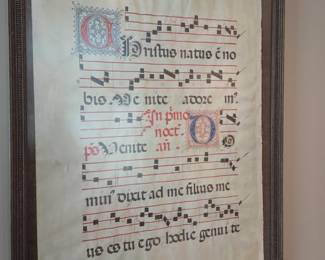 Christus natus ē no
bis. Ve nite adore m⁹.
In pͥmo
noct.
ps̄ Venite añ. Do
min⁹ dixit ad me filius me
us es tu ego hodie genui te